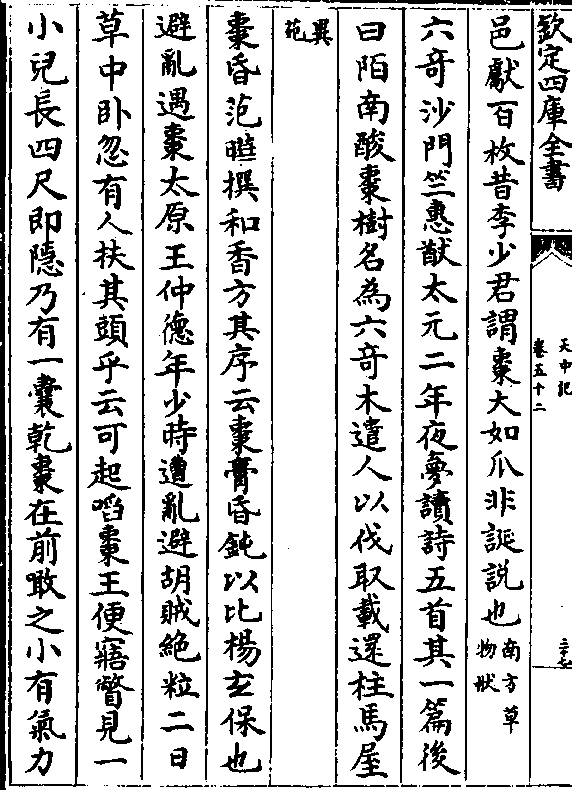 欽定四庫全書
天中記
卷五十二
邑獻百枚昔李少君謂棗大如爪非誕說也南方草物狀
六奇沙門竺惠猷太元二年夜夢讀詩五首其一篇後
曰陌南酸棗樹名為六奇木遣人以伐取載還柱馬屋
異苑
棗昏范曄撰和香方其序云棗膏昏鈍以比楊玄保也
避亂遇棗太原王仲德年少時遭亂避胡賊絶粒二日
草中卧忽有人扶其頭乎云可起啗棗王便寤瞥見一
小兒長四尺即隱乃有一囊乾棗在前噉之小有氣力